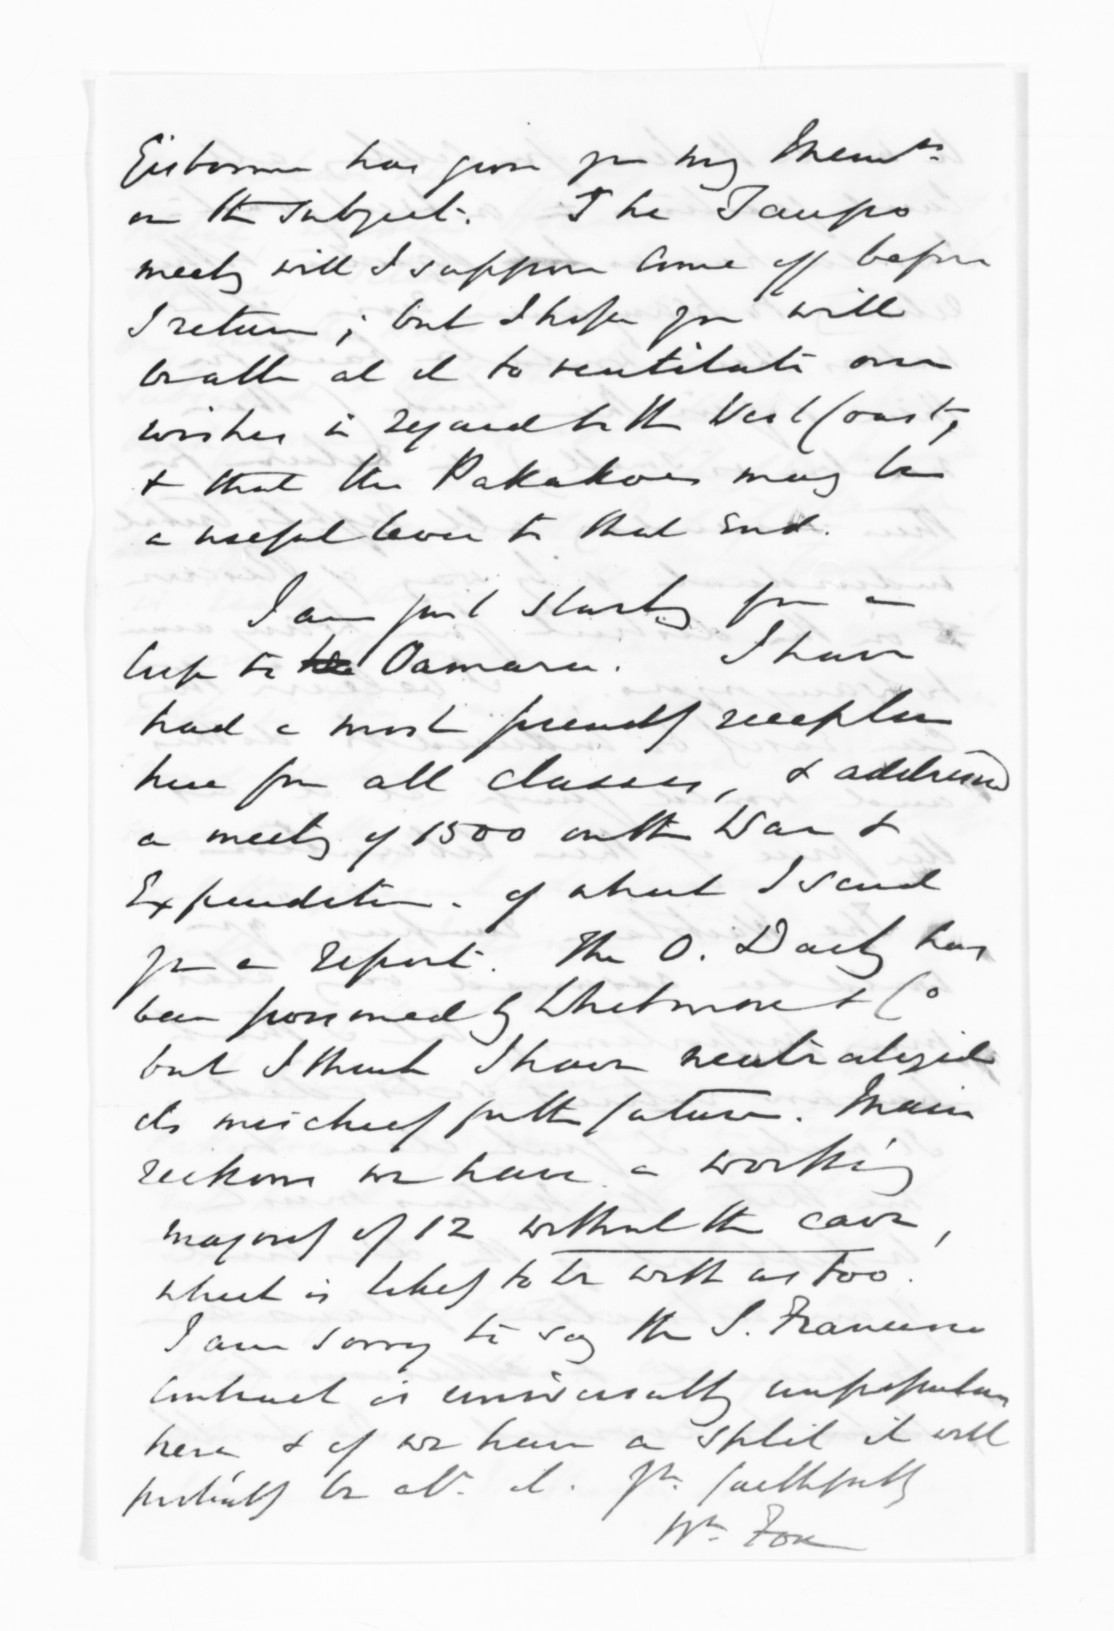 Gisborne has given you my Memdn.
on the subject. The Taupo
meetg will I suppose come off before
I return; but I hope you will
be able at it to ventilate our
wishes in regard to the West Coast,
& that the Pakakohes may be
a useful lever to that end.
I am just startg for a
trip to the Oamaru. I have
had a most friendly reception
here fm all classes, & addressed
a meetg of 1500 on the War &
Expenditure. of which I send
you a report. The O. Daily has
been poisoned by Whitmore & Co
but I think I have neutralized
its mischief for the future. Main
reckons we have a working
majority of 12 without the cave,
which is likely to be with us too.
I am sorry to say the S. Francisco
contract is universally unpopular
here & if we have a split it will
probably be abt. it. Yrs. faithfully
Wm Fox